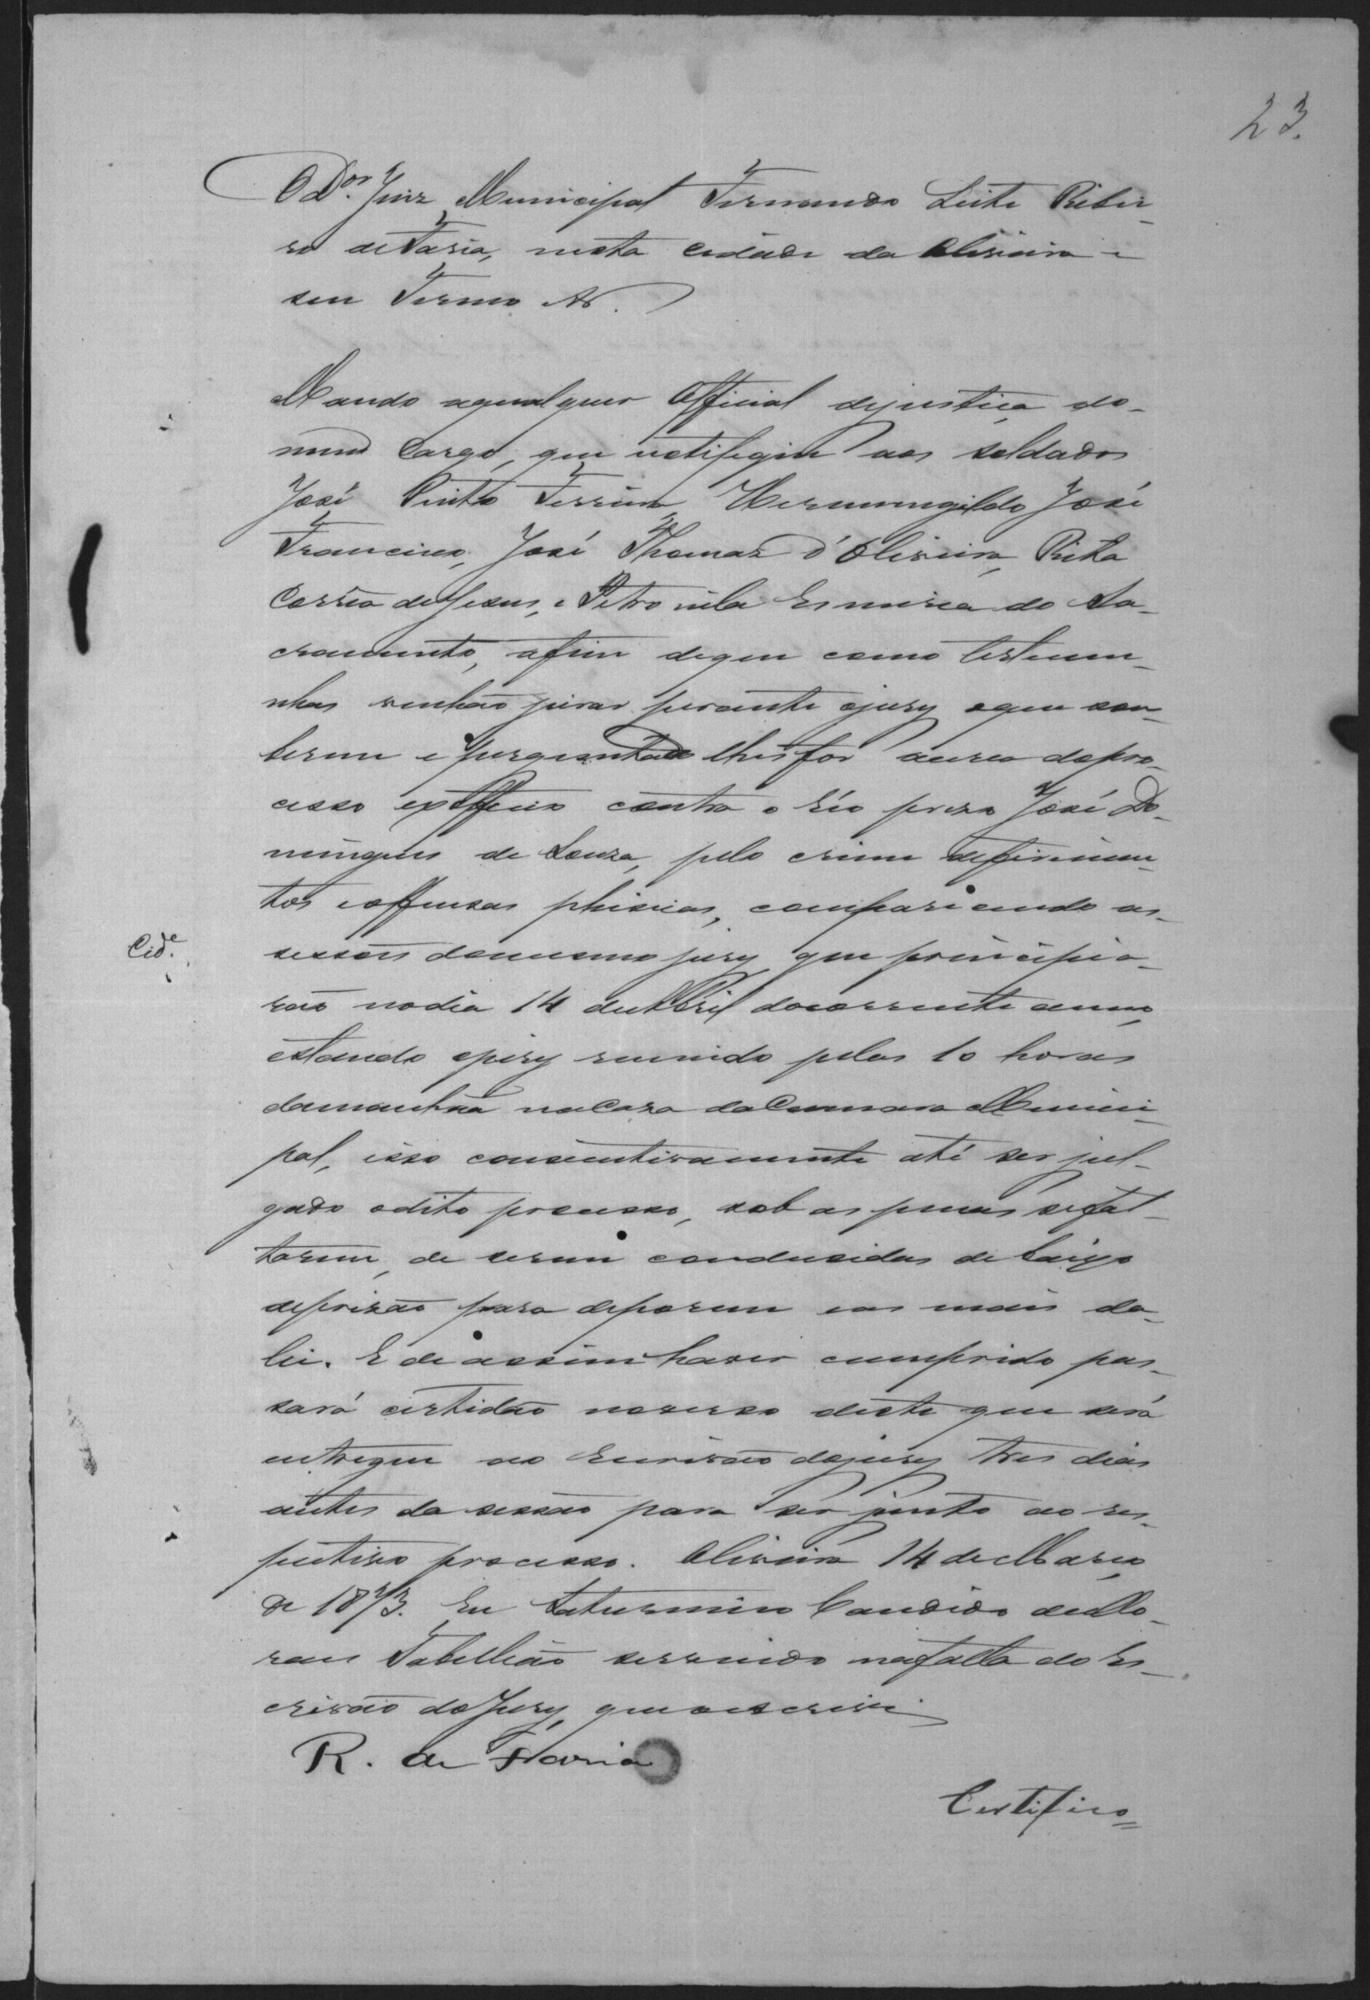 23.
O Dor. Juiz Municipal Fernando Leite Ribei-
ro de Faria, nesta cidade da Oliveira e
seu Termo &.
Mando aqualquer Official dejustiça do
meu cargo, que notifique aos soldados
José Pinto Ferreira, Hermenegildo José
Francisco, José Thomaz d'Oliveira, Rita
Corrêa deJesus, e Petronila Esmeria do Sa-
cramento, afim deque como testemu-
nhas venhão jurar perante ojury oque sou-
berem e perguntado lhes for acerca dopro-
cesso exofficio contra o réo prezo José Do-
mingues de Souza, pelo crime deferimen-
tos eoffensas phisicas, comparecendo as
Cide.
sessões domesmo jury que principia-
rão nodia 14 deAbril docorrente anno,
estando ojury reunido pelas 10 horas
damanhãa naCaza daCamara Munici-
pal, isso consecutivamente até ser jul-
gado odito processo, sob as penas sefal-
tarem, de serem condusidas debaixo
deprizão para deporem eas mais da
lei. E de assim haver cumprido pas-
sará certidão noverso deste que será
entregue ao Escrivão dojury tres dias
antes da sessão para ser junto ao res-
pectivo processo. Oliveira 14 de Março
de 1873. Eu Saturnino Candido deMo-
raes Tabellião servindo nafalta do Es-
crivão doJury, que oescrevi
R. de Faria
Certifico=